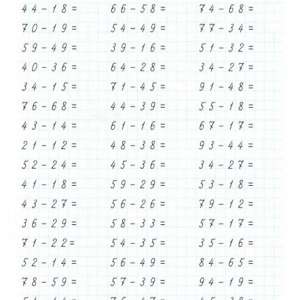 44-18= 66-58= 74-68=
70-19= 54-49= 77-34=
59-49= 39-16= 51-32=
40-36= 64-28= 34-27=
34-15= 71-45= 91-48=
76-68= 44-39= 55-18=
43-14= 61-16= 67-17=
21-12= 48-38= 93-44=
52-24= 45-36= 34-27=
41-18= 59-29= 53-18=
43-27= 56-26= 79-12=
36-29= 58-33= 57-17=
71-22= 54-35= 35-16=
52-14= 56-51= 84-65=
78-59= 57-39= 94-19=